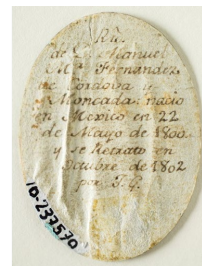 Rto.
de Dn. Manuel
Ma. Fernandez
de Cordova y
Moncada: nacio
en Mexico en 22
de Mayo de 1800.
y se Retrato en
Octubre de 1802
por T. G.
10-237570